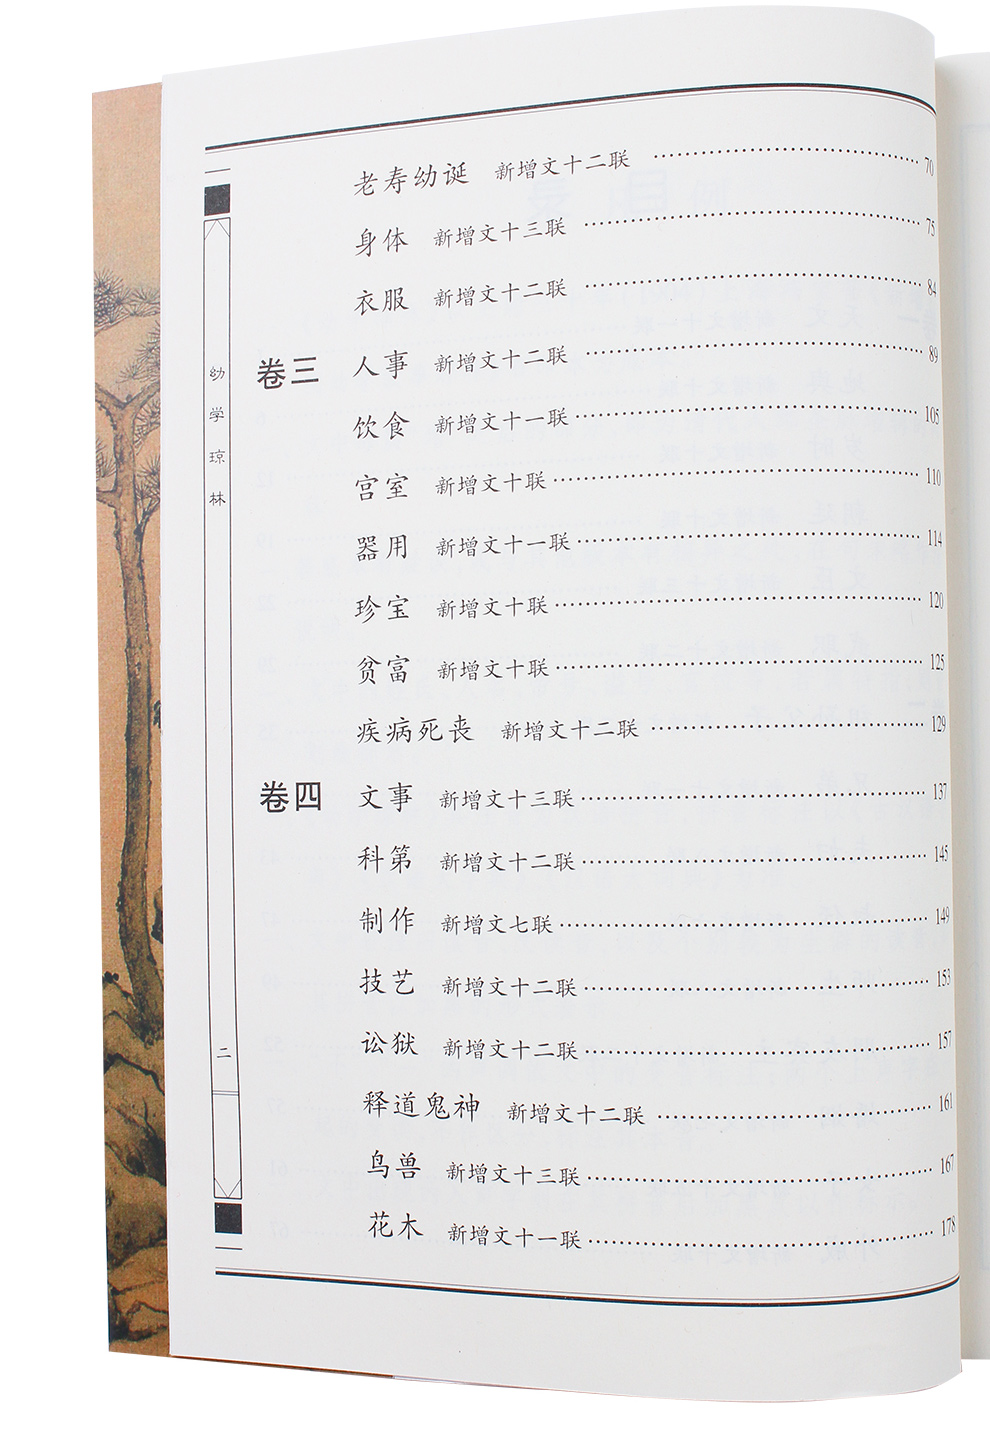 老寿幼诞 新增文十二联 ……… 70
身体 新增文十三联 ……… 75
衣服 新增文十二联 ……… 84
卷三 人事 新增文十二联 ……… 89
饮食 新增文十一联 ……… 105
宫室 新增文十联 ……… 110
器用 新增文十一联 ……… 114
珍宝 新增文十联 ……… 120
贫富 新增文十联 ……… 125
疾病死丧 新增文十二联 ……… 129
卷四 文事 新增文十三联 ……… 137
科第 新增文十二联 ……… 145
制作 新增文七联 ……… 149
技艺 新增文十二联 ……… 153
讼狱 新增文十二联 ……… 157
释道鬼神 新增文十二联 ……… 161
鸟兽 新增文十三联 ……… 167
花木 新增文十一联 ……… 178
幼学琼林
二